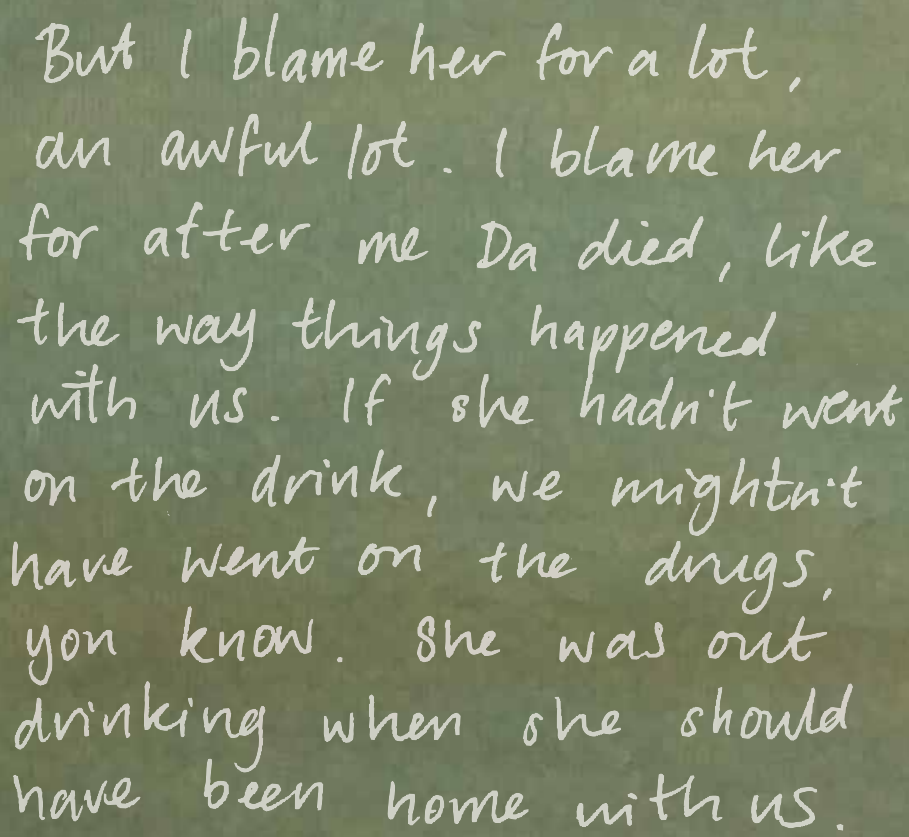 But I blame her for a lot,
an awful lot. I blame her
for after me Da died, like
the way things happened
with us. If she hadn't went
on the drink, we mightn't
have went on the drugs,
you know. She was out
drinking when she should
have been home with us.